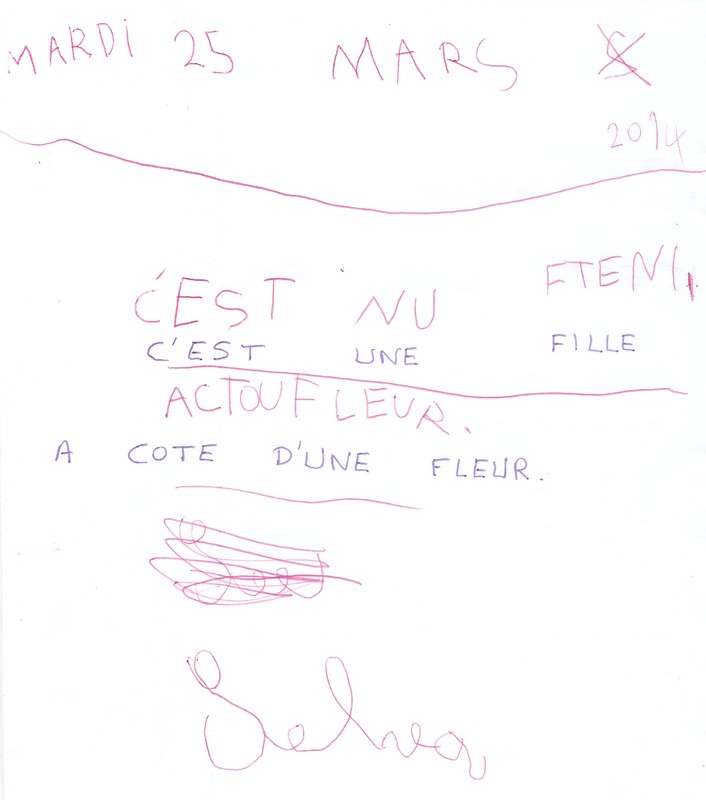 MARDI 25 MARS
2014
C'EST NU FTENI,
C'EST UNE FILLE
ACTOUFLEUR.
A COTE D'UNE FLEUR.
Selva